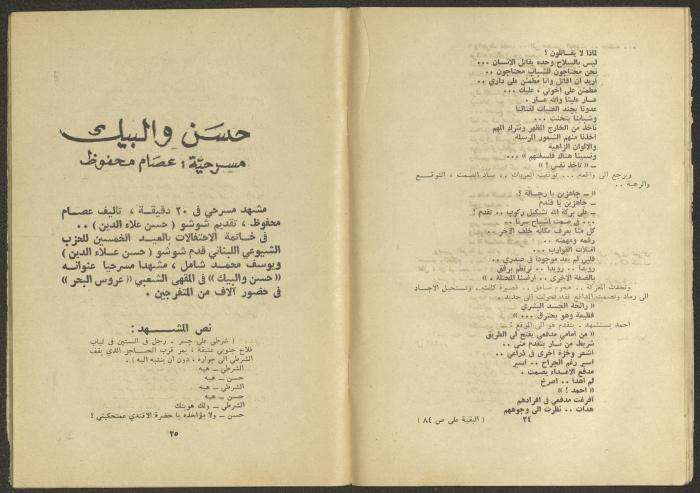 لماذا لا يقاتلون ؟
ليس بالسلاح وحده يقاتل الانسان ...
نحن محتاجون للشباب محتاجون ..
أريد ان اقاتل وأنا مطمئن على داري ..
مطمئن على اخوتي ، عليك ...
عار علينا والله عار .
عدونا يجند الفتيات لقتالنا
وشبابنا يتخنث ...
نأخذ من الخارج المظهر ونترك المهم
أخذنا منهم الشعور المرسلة
والالوان الزاهية
ونسينا هناك فلسفتهم » ...
ـ « تأخذ نفس ! »
ويرجع الى واقعه ... توقفت العربات .. ساد الصمت ، التوقع
والرهبة ..
« ـ جاهزين يا رجالة ؟
ـ جاهزين يا فندم
ـ على بركة الله تشكيل ركوب .. تقدم !
... في صمت اشباح سرنا ...
كل منا يعرف مكانه خلف الآخر ..
رقمه ومهمته ..
امتلأت القوارب ...
قلبي لم يعد موجودا في صدري ..
رويدا .. رويدا .. نرتطم برفق
بالضفة الاخرى .. ارضنا المحتلة . »
وتحدث المعركة .. هجوم صاعق .. قصيرة كانت .. وتستحيل الاجساد
الى رماد وتصمت المدافع فقد تحولت الى حديد .
« رائحة الجسد البشري
فظيعة وهو يحترق ... »
احمد يستشهد . يتقدم هو الى الموقع :
« من أمامي مدفعي يفتح لي الطريق
شريط من نار يتقدم مني ..
أشعر وخزة اخرى في ذراعي ..
أسير رغم الجراح .. أسير
مدفع الاعداء يصمت .
لم أهدأ .. اصرخ
« أحمد ! »
افرغت مدفعي في افرادهم
هدأت .. نظرت الى وجوههم
٢٤
( البقية على ص ٨٤ )
حسن والبيك
مسرحية : عصام محفوظ
مشهد مسرحي في ٢٠ دقيقة ، تأليف عصام
محفوظ ، تقديم شوشو ( حسن علاء الدين ) ..
في خاتمة الاحتفالات بالعيد الخمسين للحزب
الشيوعي اللبناني قدم شوشو ( حسن علاء الدين )
ويوسف محمد شامل ، مشهدا مسرحيا عنوانه
« حسن والبيك » في المقهى الشعبي « عروس البحر »
في حضور آلاف من المتفرجين .
نص المشهد :
( شرطي على جسر . رجل في الستين في لباب
فلاح جنوبي عتيقة ، يمر قرب الحاجز الذي يقف
الشرطي الى جواره ، دون ان ينتبه اليه ) .
الشرطي ـ هيه
حسن ـ هيه
الشرطي ـ هيه
حسن ـ هيه
الشرطي ـ ولك هويتك
حسن ـ ولا مؤاخذه يا حضرة الافندي عمتحكيني !
٢٥